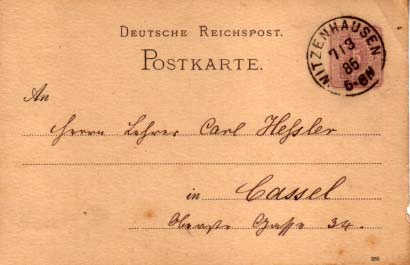 DEUTSCHE REICHSPOST.
POSTKARTE.
WITZENHAUSEN
7/3
85
6-8N
An
Herrn Lehrer Carl Heßler
in Cassel
Oberste Gasse 34.
285